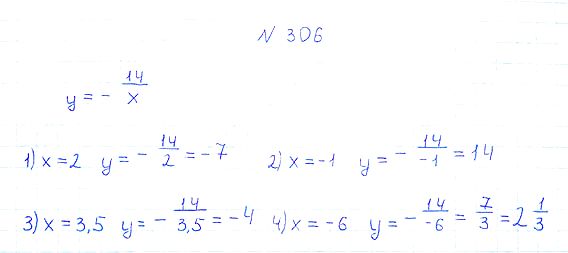 N 306
y = - 14/x
1) x = 2 y = - 14/2 = -7 2) x = -1 y = - 14/-1 = 14
3) x = 3,5 y = - 14/3,5 = -4 4) x = -6 y = - 14/-6 = 7/3 = 2 1/3